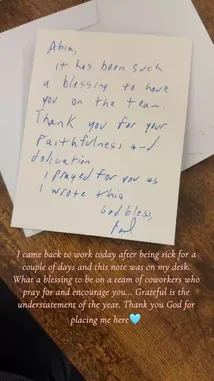 Abin,
it has been such
a blessing to have
you on the team.
Thank you for your
Faithfulness and
dedication
I prayed for you as
I wrote this
God bless,
Paul
I came back to work today after being sick for a
couple of days and this note was on my desk.
What a blessing to be on a team of coworkers who
pray for and encourage you... Grateful is the
understatement of the year. Thank you God for
placing me here🩵